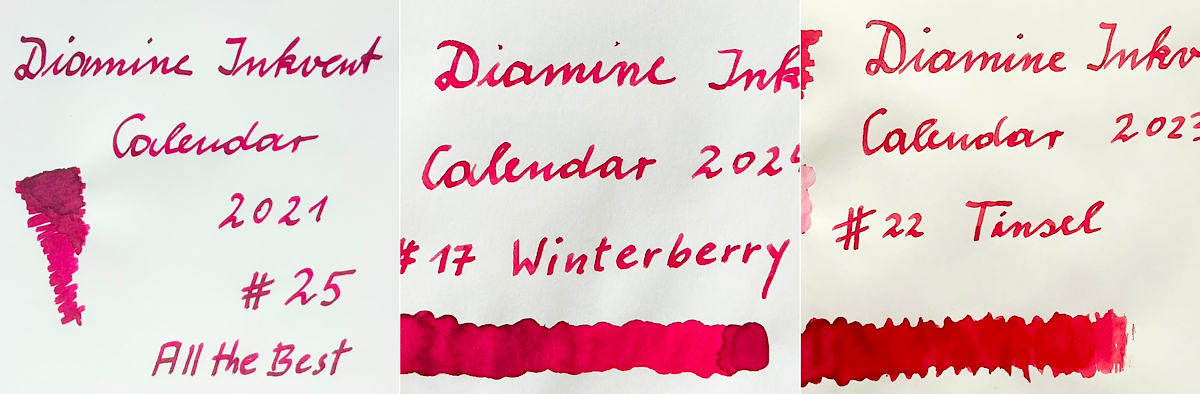 Diamine Inkvent
Calendar
2021
#25
All the Best
Diamine Ink
Calendar 2024
#17 Winterberry
Diamine Inkv
Calendar 2023
#22 Tinsel